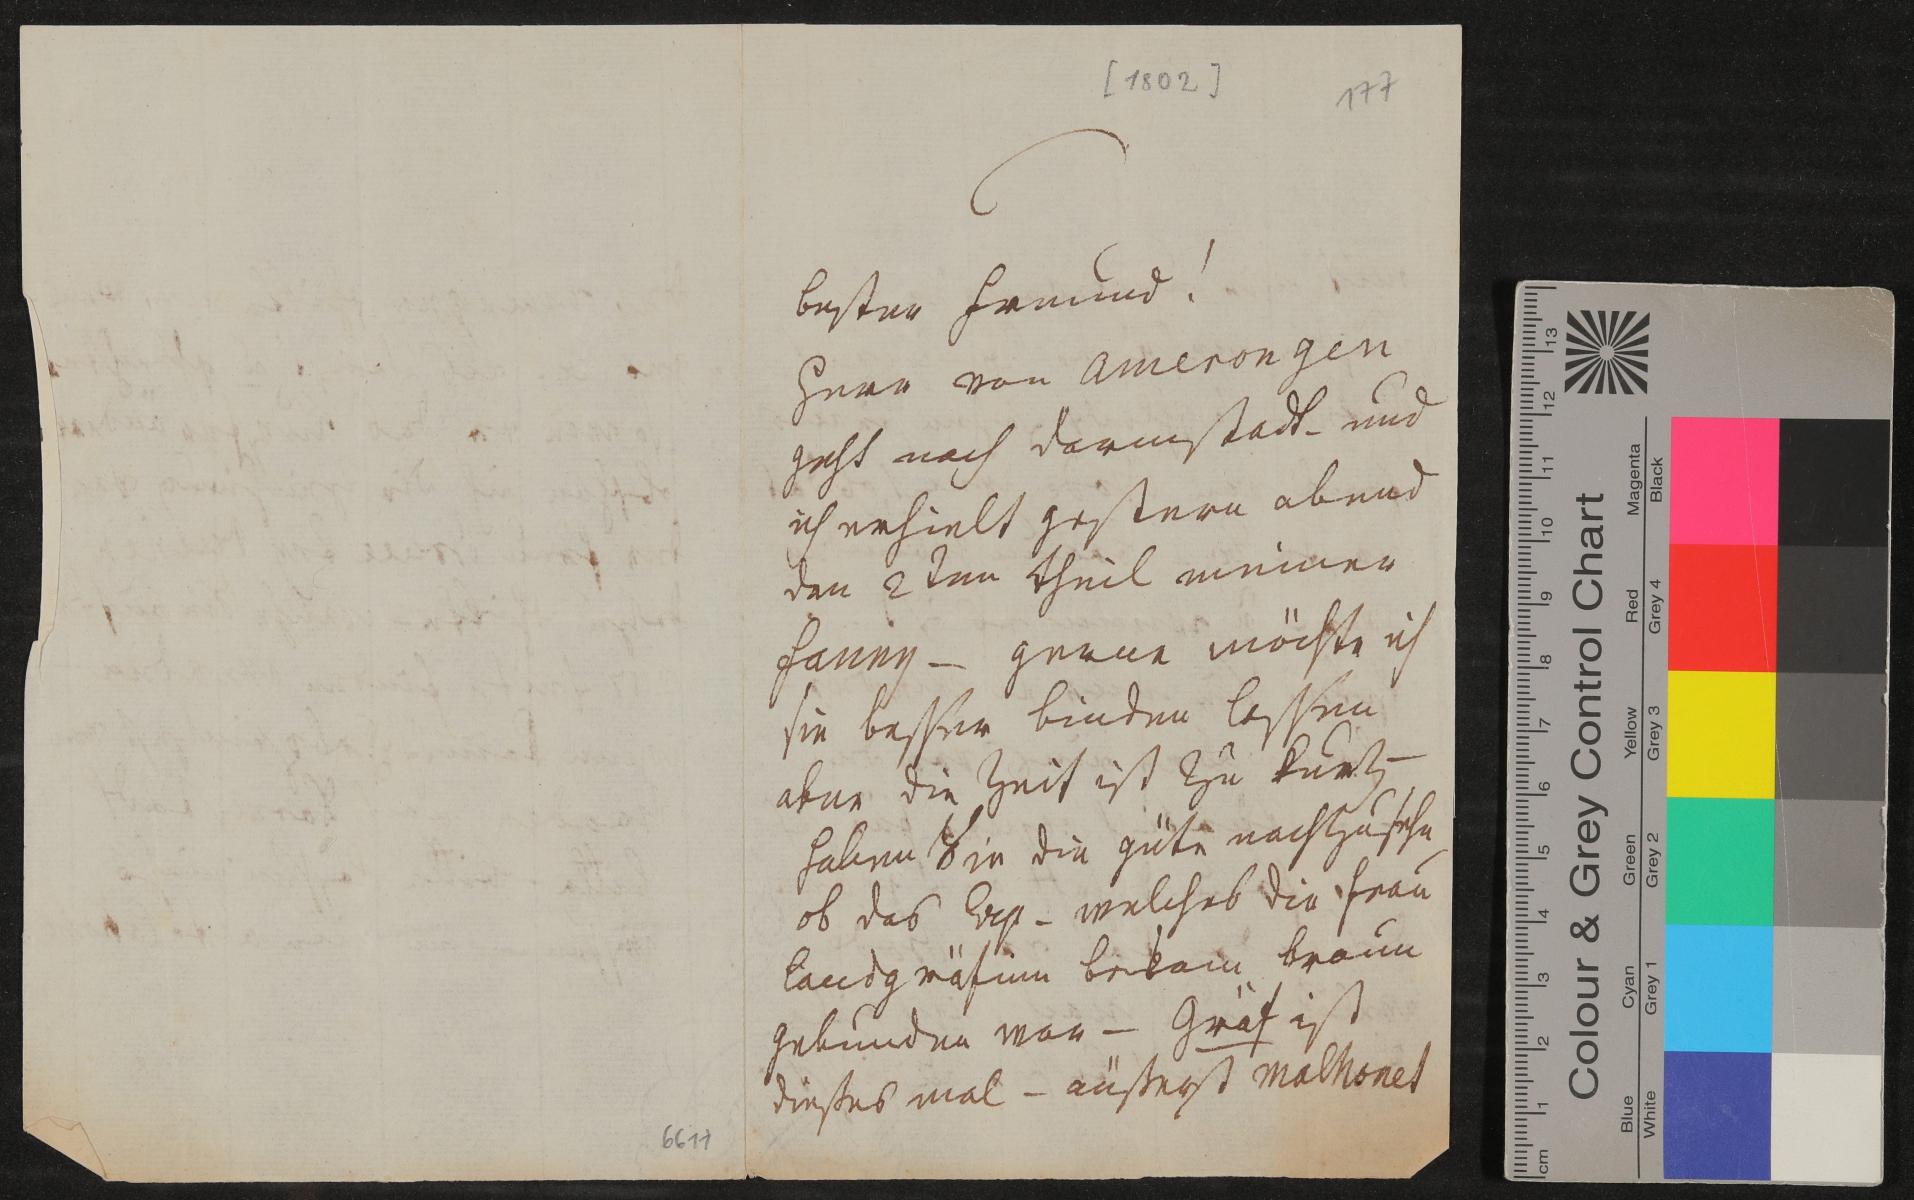 [1802]
177
bester Freund!
Herr von Amerongen
geht nach darmstadt – und
ich erhielt gestern abend
den 2ten theil meiner
Fanny – gerne möchte ich
sie besser binden lassen
aber die Zeit ist zu kurtz –
haben Sie die güte nachzusehn
ob das Exp – welches die Frau
Landgräfinn bekam braun
gebunden war – Gräf ist
dießes mal – äußerst malhonet
6617
Colour & Grey Control Chart
Blue Cyan Green Yellow Red Magenta
White Grey 1 Grey 2 Grey 3 Grey 4 Black
cm 1 2 3 4 5 6 7 8 9 10 11 12 13